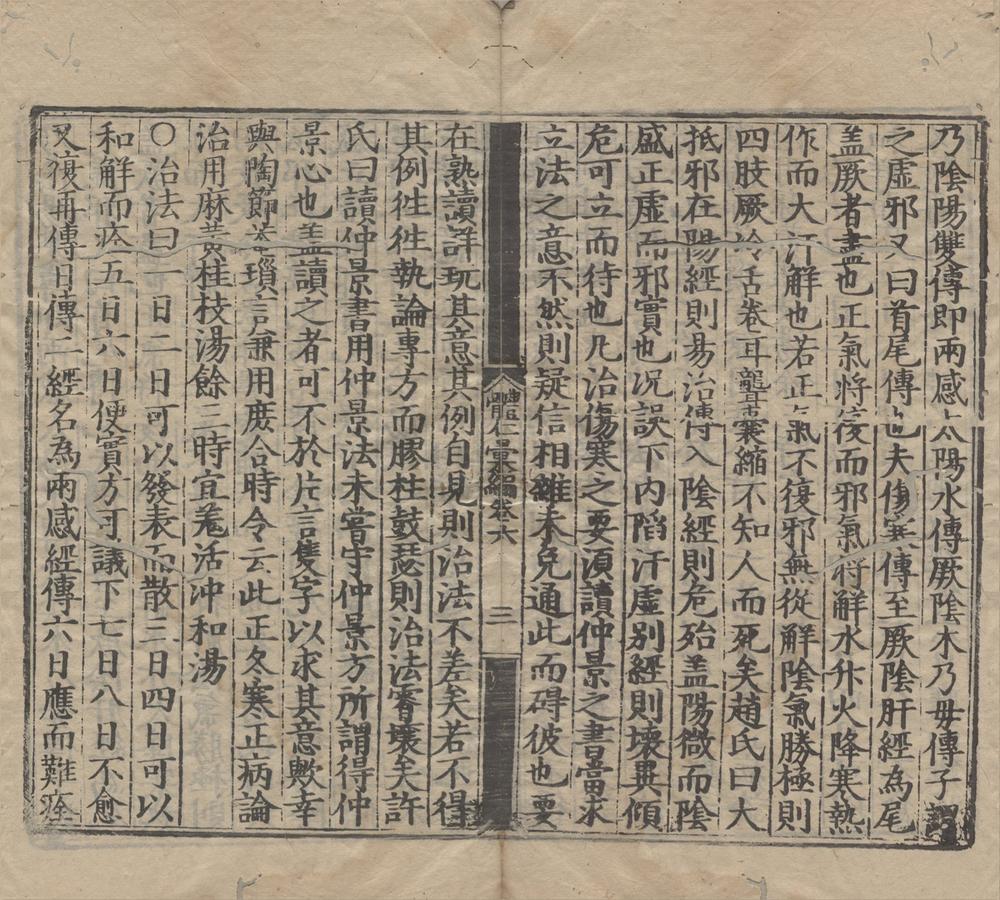 乃陰陽雙傳即兩感太陽水傳厥陰木乃毋傳子謂
之虛邪又曰首尾傳也夫傷寒傳至厥陰肝經為尾
盖厥者盡也正氣將復而邪氣將解水升火降寒熱
作而大汗解也若正氣不復邪無從解陰氣勝極則
四肢厥冷舌卷耳聾囊縮不知人而死矣趙氏曰大
抵邪在陽經則易治傳入陰經則危殆盖陽微而陰
盛正虛而邪實也况誤下内陷汗虛别經則壞異傾
危可立而待也凡治傷寒之要須讀仲景之書當求
立法之意不然則疑信相雜未免通此而碍彼也要
體仁彙編卷六 三
在熟讀詳玩其意其例自見則治法不差矣若不得
其例徃徃執論專方而膠柱鼓瑟則治法瘩壞矣許
氏曰讀仲景書用仲景法未嘗守仲景方所謂得仲
景心也盖讀之者可不於片言隻字以求其意歟幸
與陶節菴瑣言兼用庶合時令云此正冬寒正病論
治用麻黄桂枝湯餘三時宜羗活沖和湯
〇治法曰一日二日可以發表而散三日四日可以
和解而痊五日六日便實方可議下七日八日不愈
又復再傳日傳二經名為兩感經傳六日應而難痊